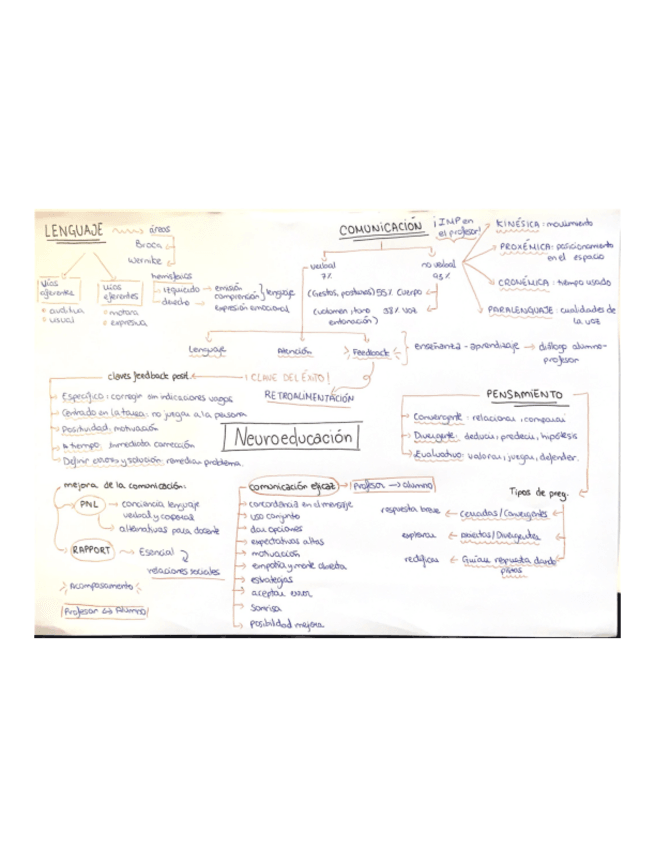 LENGUAJE
áreas
Broca
Wernike
vías aferentes
auditiva
visual
vías eferentes
motora
expresiva
hemisferios
izquierdo → emisión comprensión } lenguaje
derecho → expresión emocional
COMUNICACIÓN
¡IMP en el profesor!
verbal
7%
no verbal
93%
(Gestos, posturas) 55% Cuerpo
(volumen, tono entonación) 38% voz
KINÉSICA: movimiento
PROXÉMICA: posicionamiento en el espacio
CRONÉMICA: tiempo usado
PARALENGUAJE: cualidades de la voz
Lenguaje
Atención
Feedback
enseñanza - aprendizaje → diálogo alumno-profesor
claves feedback posit.
¡CLAVE DEL ÉXITO!
RETROALIMENTACIÓN
Específico: corregir sin indicaciones vagas
Centrado en la tarea: no juzgar a la persona
Positividad: motivación
A tiempo: inmediata corrección
Definir errores y solución: remediar problema.
Neuroeducación
PENSAMIENTO
Convergente: relacionar, comparar
Divergente: deducir, predecir, hipótesis
Evaluativo: valorar, juzgar, defender.
Tipos de preg.
respuesta breve ← cerradas/Convergentes
explorar ← abiertas/Divergentes
redefinir ← Guiar respuesta dando pistas
mejora de la comunicación:
PNL
conciencia lenguaje verbal y corporal
alternativas para docente
RAPPORT
Esencial
relaciones sociales
Acompasamento
Profesor ↔ Alumno
comunicación eficaz
Profesor → alumno
concordancia en el mensaje
uso conjunto
dar opciones
expectativas altas
motivación
empatía y mente abierta
estrategias
aceptar error
sonrisa
posibilidad mejora